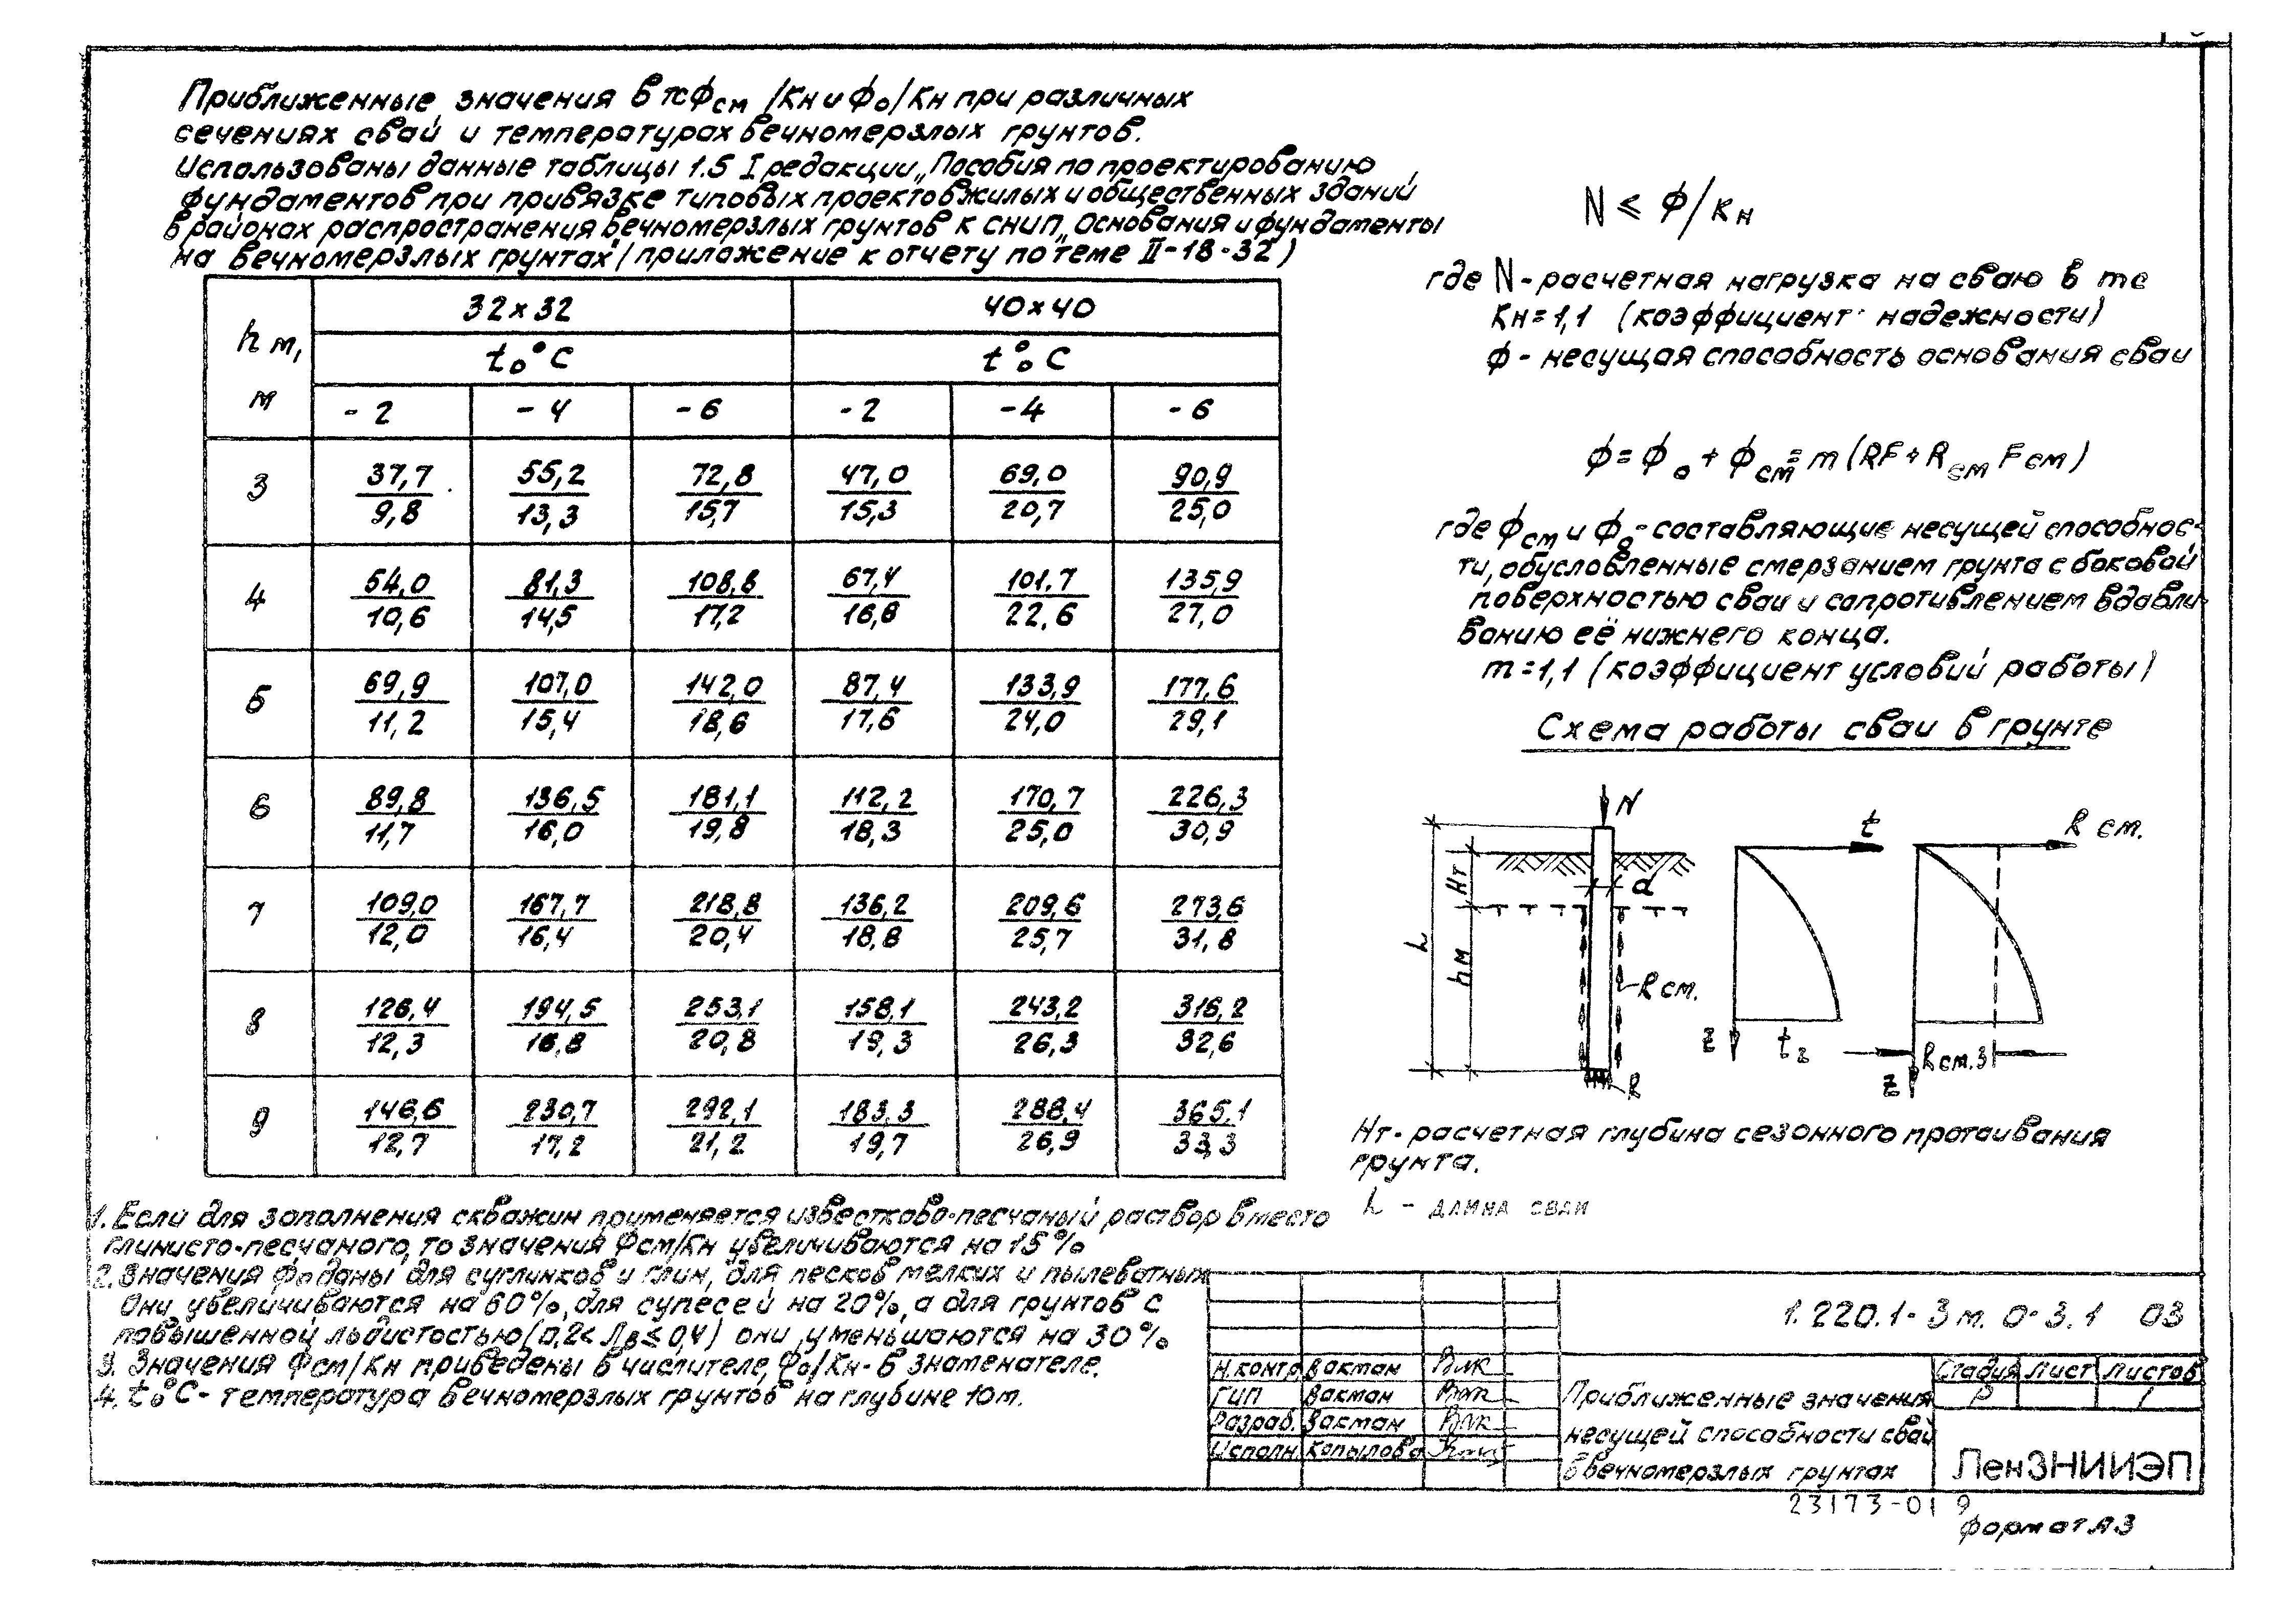 Приближенные значения в тс Фсм /Кн и Фо/Кн при различных
сечениях свай и температурах вечномерзлых грунтов.
Использованы данные таблицы 1.5 I редакции „Пособия по проектированию
фундаментов при привязке типовых проектов жилых и общественных зданий
в районах распространения вечномерзлых грунтов к СНиП „Основания и фундаменты
на вечномерзлых грунтах" (приложение к отчету по теме II-18-32)
h м, м
32×32 40×40
to°C to°C
-2 -4 -6 -2 -4 -6
3 37,7/9,8 55,2/13,3 72,8/15,7 47,0/15,3 69,0/20,7 90,9/25,0
4 54,0/10,6 81,3/14,5 108,8/17,2 67,4/16,8 101,7/22,6 135,9/27,0
5 69,9/11,2 107,0/15,4 142,0/18,6 87,4/17,6 133,9/24,0 177,6/29,1
6 89,8/11,7 136,5/16,0 181,1/19,8 112,2/18,3 170,7/25,0 226,3/30,9
7 109,0/12,0 167,7/16,4 218,8/20,4 136,2/18,8 209,6/25,7 273,6/31,8
8 126,4/12,3 194,5/16,8 253,1/20,8 158,1/19,3 243,2/26,3 316,2/32,6
9 146,6/12,7 230,7/17,2 292,1/21,2 183,3/19,7 288,4/26,9 365,1/33,3
1. Если для заполнения скважин применяется известково-песчаный раствор вместо
глинисто-песчаного, то значения Фсм/Кн увеличиваются на 15%
2. Значения Фо даны для суглинков и глин, для песков мелких и пылеватых
Они увеличиваются на 60%, для супесей на 20%, а для грунтов с
повышенной льдистостью (0,2< Лв ≤ 0,4) они уменьшаются на 30%
3. Значения Фсм/Кн приведены в числителе, Фо/Кн - в знаменателе.
4. to°C - температура вечномерзлых грунтов на глубине 10м.
N ≤ Ф/Кн
где N - расчетная нагрузка на сваю в тс
Кн = 1,1 (коэффициент надежности)
Ф - несущая способность основания сваи
Ф = Фо + Фсм = m (RF + Rсм Fсм)
где Фсм и Фо - составляющие несущей способнос-
ти, обусловленные смерзанием грунта с боковой
поверхностью сваи и сопротивлением вдавли-
ванию её нижнего конца.
m = 1,1 (коэффициент условий работы)
Схема работы сваи в грунте
N
t
R см.
Нт
d
L
hм
R см.
R
z
tz
Rсм.э
z
Нт - расчетная глубина сезонного протаивания
грунта.
L - длина сваи
1.220.1-3м. 0-3.1 03
Н.контр. Вакман
ГИП Вакман
Разраб. Вакман
Исполн. Копылова
Приближенные значения
несущей способности свай
в вечномерзлых грунтах
Стадия Лист Листов
Р 1
ЛенЗНИИЭП
23173-01 9
формат А3